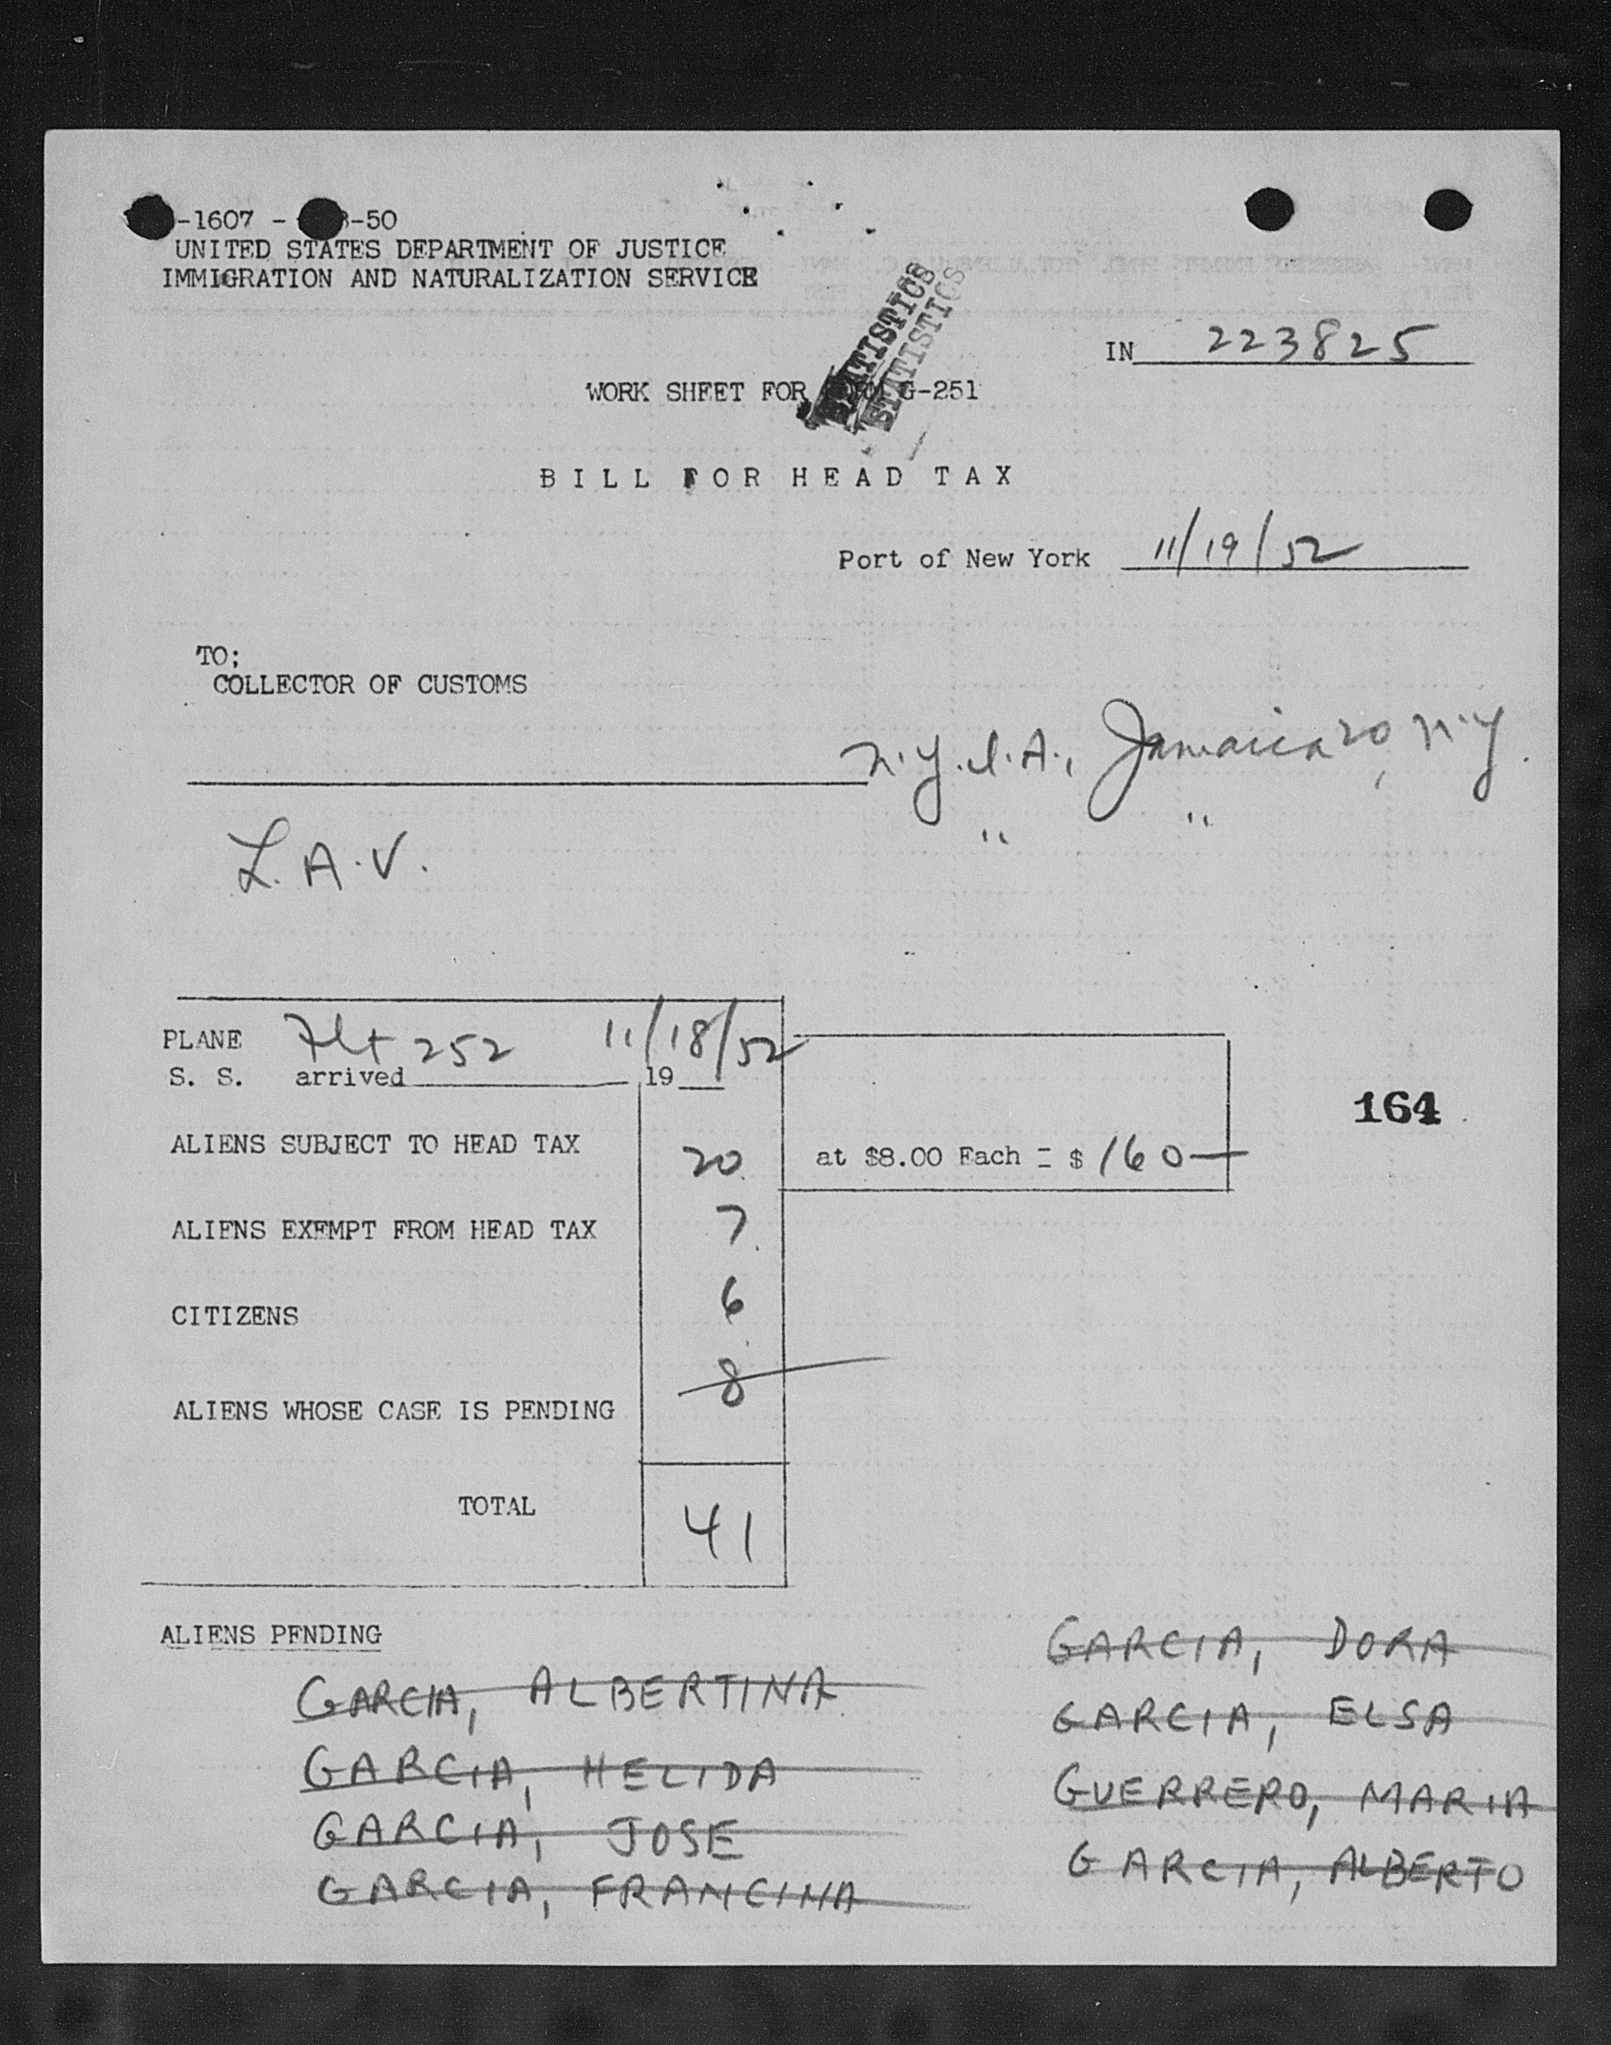 -1607 - -50
UNITED STATES DEPARTMENT OF JUSTICE
IMMIGRATION AND NATURALIZATION SERVICE
STATISTICS
STATISTICS
IN 223825
WORK SHEET FOR FORM G-251
BILL FOR HEAD TAX
Port of New York 11/19/52
TO:
COLLECTOR OF CUSTOMS
N.Y.I.A., Jamaica 20, N.Y.
" "
L.A.V.
PLANE Flt 252 11/18/52
S. S. arrived , 19
164
ALIENS SUBJECT TO HEAD TAX 20 at $8.00 Each = $ 160—
ALIENS EXEMPT FROM HEAD TAX 7
CITIZENS 6
ALIENS WHOSE CASE IS PENDING 8
TOTAL 41
ALIENS PENDING
GARCIA, ALBERTINA
GARCIA, HELIDA
GARCIA, JOSE
GARCIA, FRANCINA
GARCIA, DORA
GARCIA, ELSA
GUERRERO, MARIA
GARCIA, ALBERTO